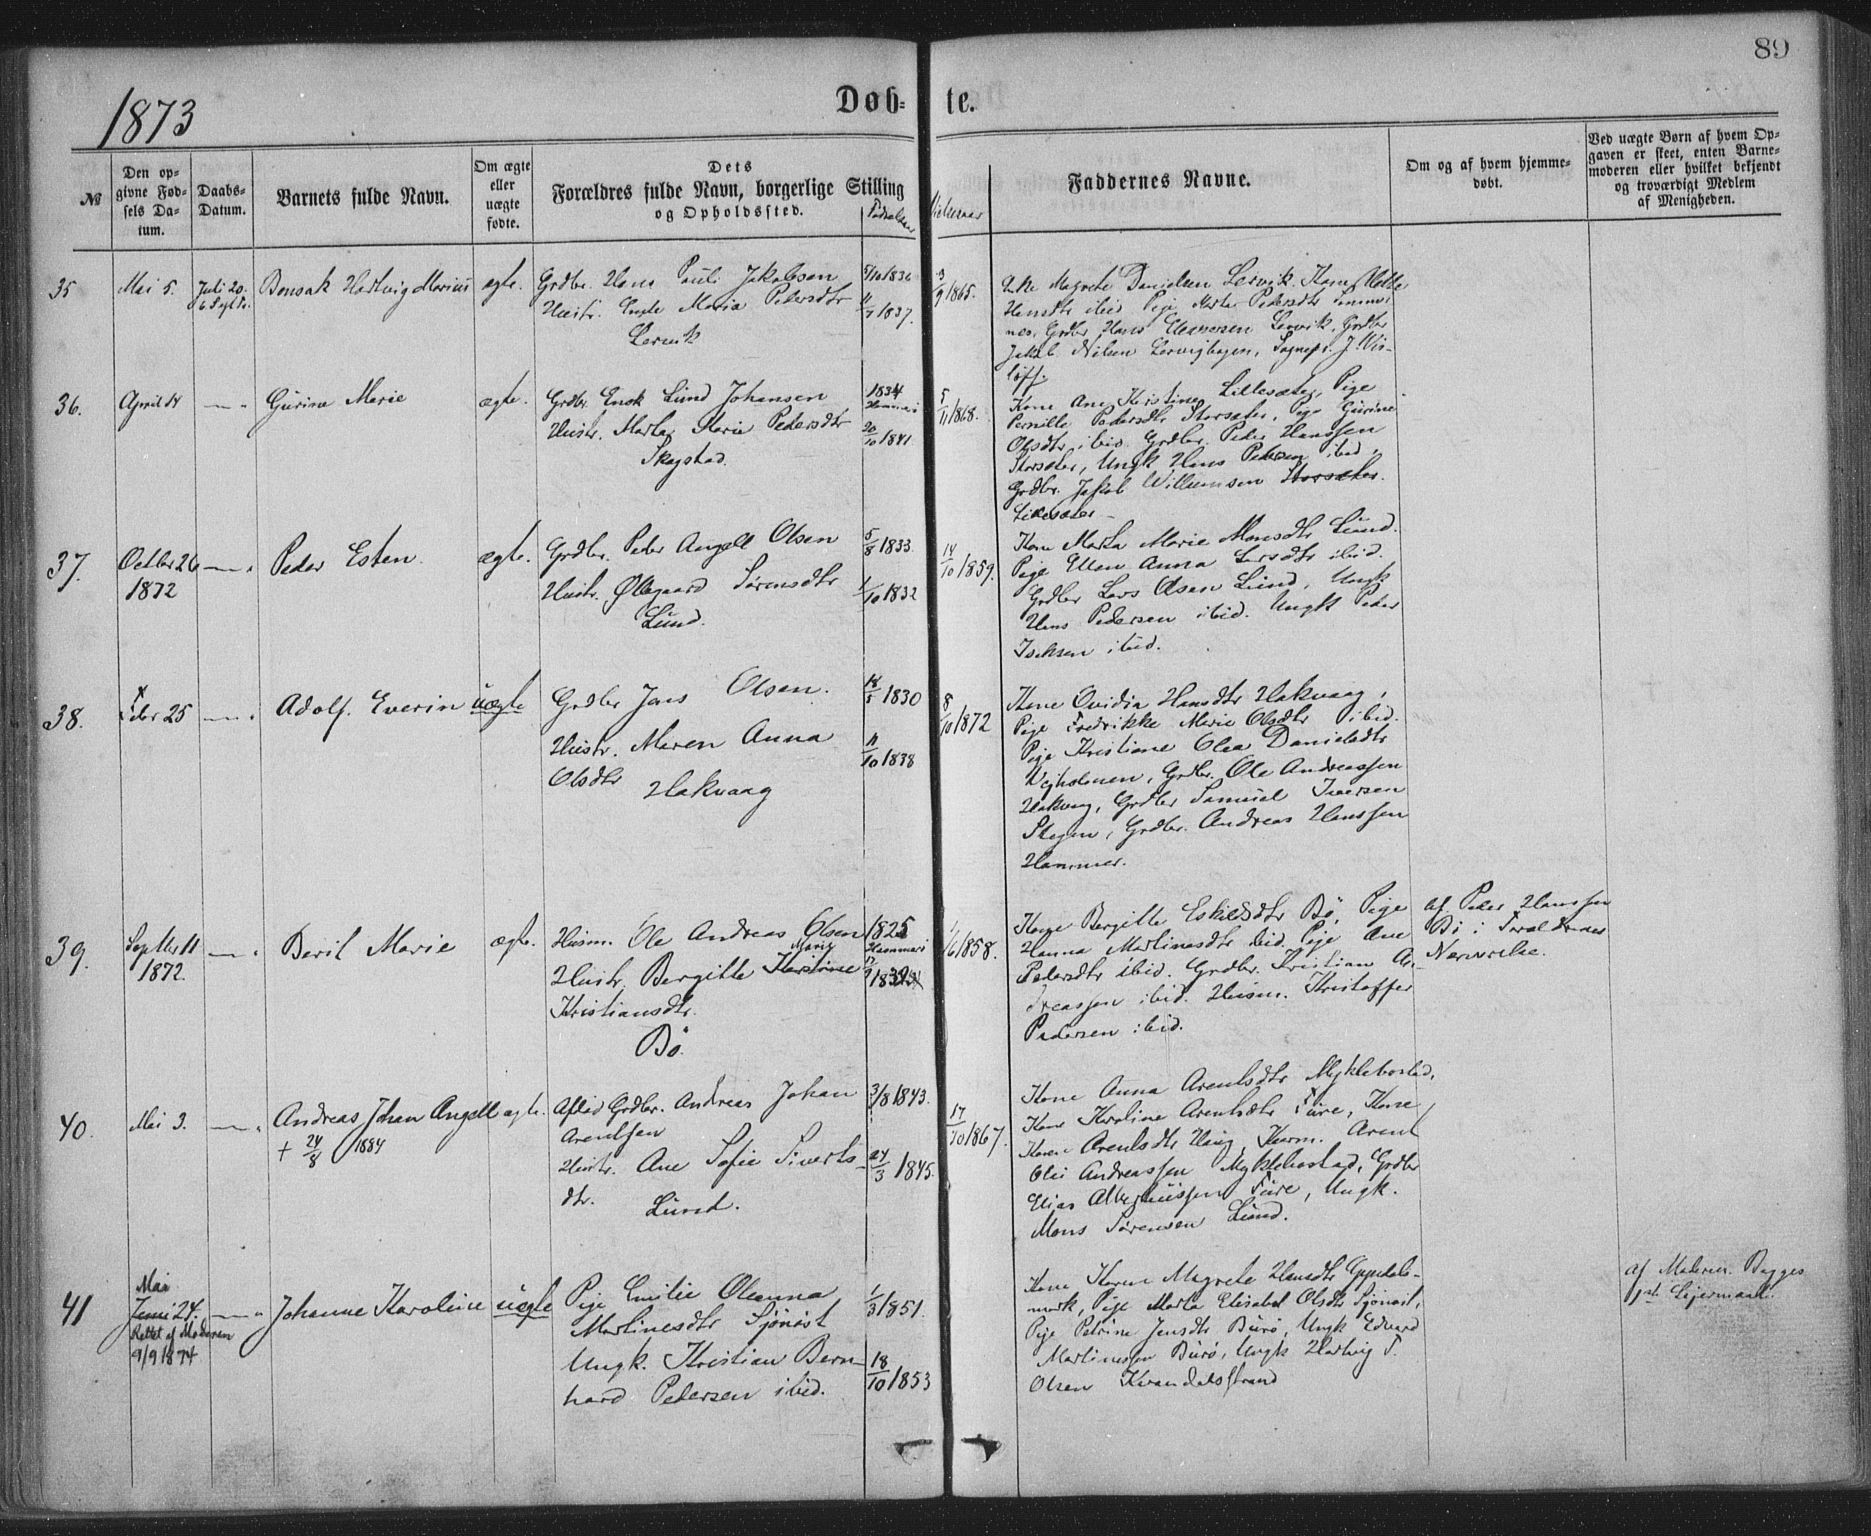 89
1873
Døb- te.
№
Den op-
givne Fød-
sels Da-
tum.
Daabs-
Datum.
Barnets fulde Navn.
Om ægte
eller
uægte
fødte.
Dets
Forældres fulde Navn, borgerlige Stilling
og Opholdssted.
Fødselsaar
Vielsesaar
Faddernes Navne.
Om og af hvem hjemme-
døbt.
Ved uægte Børn af hvem Op-
gaven er skeet, enten Barne-
moderen eller hvilket bekjendt
og troværdigt Medlem
af Menigheden.
35 Mai 5. Juli 20.
6 S. e. Tr.
Bonsak Hartvig Marius ægte.
Grdbr. Hans Pauli Jakobsen
Hustr. Maria Pedersdtr
Lervik
/10 1836
11/7 1837.
3/9 1865.
Enke Magrete Danielsen Lervik. Kone
Hansdtr ibid Pige Marta Pedersdtr
nes, Grdbr Hans Lervik, Grdbr
Jakob Nilsen Lervighagen, Sognepr. J. Wis-
løff.
36. April 14 — " Gurine Marie ægte.
Grdbr. Enok Lund Johansen
Hustr. Marta Marie Pedersdtr
Skagstad.
1834
Hammarø
20/10 1841
5/11 1868.
Kone Ane Kristine Lillesæter, Pige
Pernille Pedersdtr Storsæter, Pige Gurine
Olsdtr ibid. Grdbr. Peder Hanssen
Storsæter, Ungk Hans Pedersen ibid,
Grdbr. Jakob Willumsen Storsæter.
Lillesæter —
37. Octbr 26
1872 — " Peder Esten. ægte.
Grdbr. Peder Angell Olsen
Hustr. Øllegaard Sørensdtr
Lund.
5/8 1833.
1/10 1832
14/10 1859.
Kone Marta Marie Monsdtr Lund.
Pige Ellen Anna Larsdtr ibid.
Grdbr Lars Olsen Lund, Ungk
Hans Pedersen ibid. Ungk Peder
Isaksen ibid.
38. Febr 25 — " Adolf Everin uægte
Grdbr Jens Olsen.
Hustr. Maren Anna
Olsdtr Hakvaag
18/5 1830
11/10 1838
8/10 1872
Kone Ovidia Hansdtr Hakvaag,
Pige Fredrikke Marie Olsdtr ibid.
Pige Kristiane Olea Danielsdtr
Vejholmen, Grdbr. Ole Andreassen
Hakvaag, Grdbr Samuel Iversen
Skogen, Grdbr. Andreas Hanssen
Hammer.
39. Septbr 11
1872. — " Beril Marie ægte.
Husm. Ole Andreas Olsen
Marie
Hustr. Bergitte Kristine
Kristiansdtr.
Bø.
1825
Hammarø
1832
/6 1858.
Kone Bergitte Eskildsdtr Bø, Pige
Hanna Martinesdtr ibid. Pige Ane
Pedersdtr ibid. Grdbr. Kristian An-
dreassen ibid. Husm. Kristoffer
Pedersen ibid.
af Peder Hanssen
Bø i Forældrenes
Nærværelse.
40. Mai 3. — " Andreas Johan Angell ægte.
+ 24/8 1884
Aflid Grdbr. Andreas Johan
Arentsen
Hustr. Ane Sofie Siverts-
dtr. Lund.
3/8 1843.
24/3 1845.
17/10 1867.
Kone Anna Arentsdtr Myklebostad,
Kone Karoline Arentsdtr Fure, Kone
Karen Arentsdtr Haug, Kaarm. Arent
Olai Andreassen Myklebostad, Grdbr
Elias Albertiussen Fure, Ungk.
Mons Sørensen Lund.
41 Mai
Juni 24. — "
Rettet af Moderen
9/9 1874
Johanne Karoline uægte
Pige Emilie Oleanna
Martinesdtr Sjønøst
Ungk. Kristian Bern-
hard Pedersen ibid.
1/3 1851.
18/10 1853
Kone Karen Magrete Hansdtr Gyndals-
mark, Pige Marta Elisabet Olsdtr Sjønøst,
Pige Petrine Jensdtr Burø, Ungk Edvard
Martinussen Burø, Ungk Hartvig P.
Olsen Kvandalsstrand
af Moderen. Begges
1ste Lejermaal.